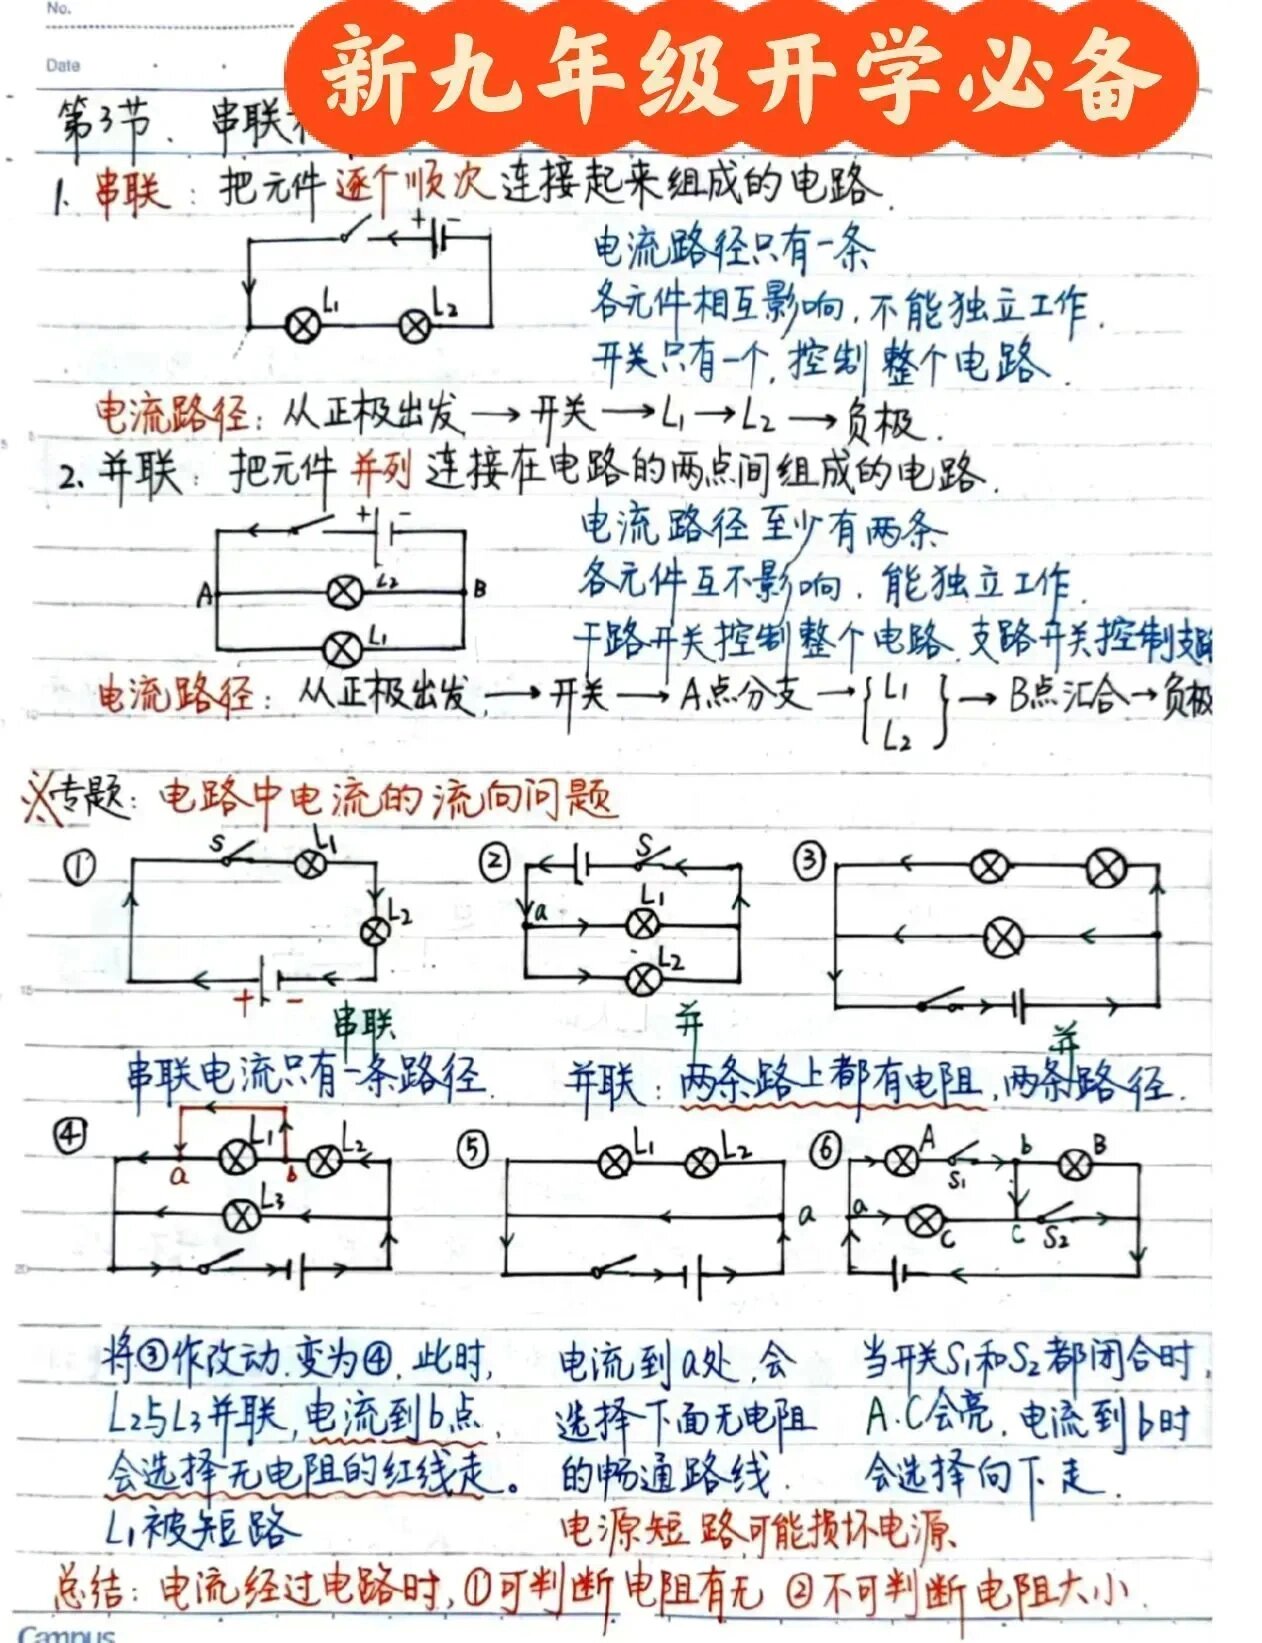 No.
新九年级开学必备
Date
第3节、串联
1. 串联：把元件逐个顺次连接起来组成的电路.
+ -
L1 L2
电流路径只有一条
各元件相互影响,不能独立工作.
开关只有一个,控制整个电路.
电流路径：从正极出发→开关→L1→L2→负极.
2、并联：把元件并列连接在电路的两点间组成的电路.
+ -
A L2 B
L1
电流路径至少有两条
各元件互不影响,能独立工作.
干路开关控制整个电路.支路开关控制支路
电流路径：从正极出发,→开关→A点分支→{L1 L2}→B点汇合→负极
※专题：电路中电流的流向问题
① S L1 L2 + -
串联
② S a L1 L2
并
③
并
串联电流只有一条路径.
并联：两条路上都有电阻,两条路径.
④ L1 L2 a b L3
⑤ L1 L2 a
⑥ A S1 b B a C c S2
将③作改动.变为④,此时,
L2与L3并联,电流到b点,
会选择无电阻的红线走。
L1被短路
电流到a处,会
选择下面无电阻
的畅通路线.
电源短路可能损坏电源、
当开关S1和S2都闭合时,
A.C会亮,电流到b时
会选择向下走.
总结：电流经过电路时,①可判断电阻有无 ②不可判断电阻大小.
Campus